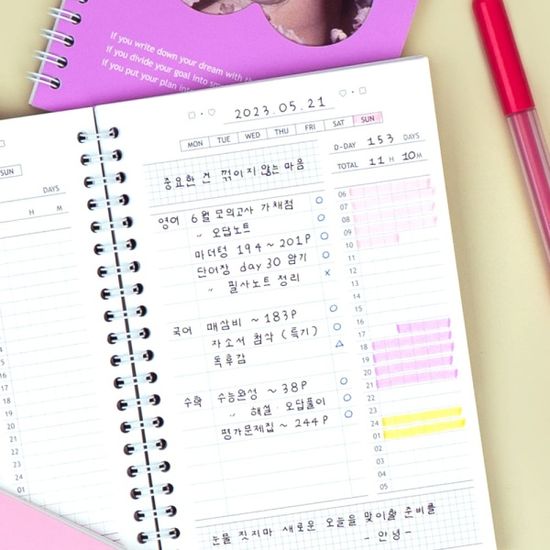 If you write down your dream with
If you divide your goal into
If you put your plan into
SUN
DAYS
H M
2023.05.21
MON TUE WED THU FRI SAT SUN
D-DAY 153 DAYS
TOTAL 11 H 10 M
중요한 건 꺾이지 않는 마음
영어 6월 모의고사 가채점 ○
〃 오답노트 ○
마더텅 194~201P ○
단어장 day 30 암기 ○
〃 필사노트 정리 ×
국어 매삼비 ~183P ○
자소서 첨삭 (특기) ○
독후감 △
수학 수능완성 ~38P ○
〃 해설·오답풀이 ○
평가문제집 ~244P ○
06
07
08
09
10
11
12
13
14
15
16
17
18
19
20
21
22
23
24
01
02
03
04
05
눈물 짓지마 새로운 오늘을 맞이할 준비를
- 안녕 -